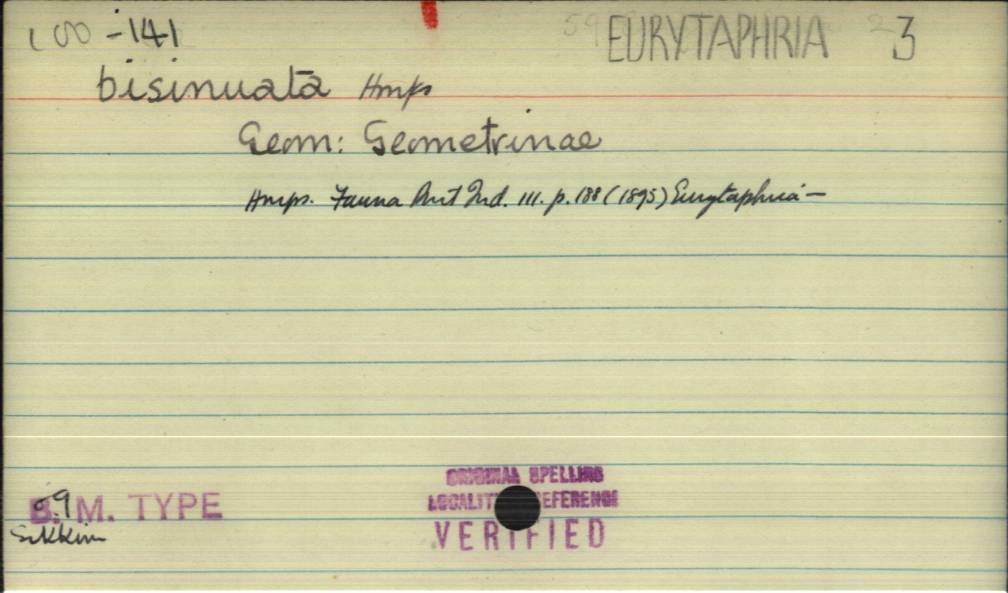 100-141 59 EURYTAPHRIA 3
bisinuata Hmps
Geom: Geometrinae
Hmps. Fauna Brit Ind. III. p. 188 (1895) Eurytaphria —
ORIGINAL SPELLING
LOCALITY REFERENCE
B. M. TYPE
VERIFIED
Sikkim